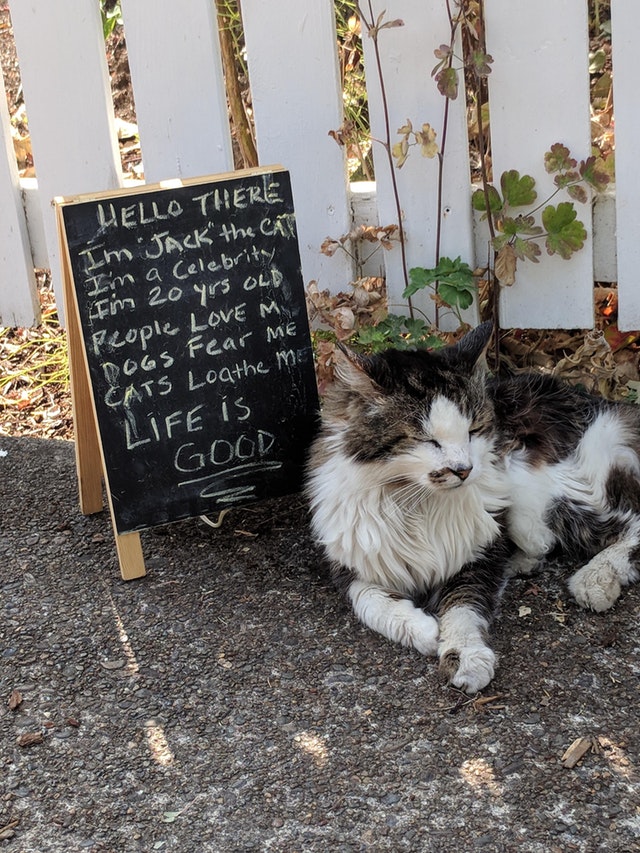 HELLO THERE
Im "JACK" the CAT
Im a Celebrity
Im 20 yrs OLD
People LOVE M
DOGS Fear ME
CATS Loathe ME
LiFE is
GOOD